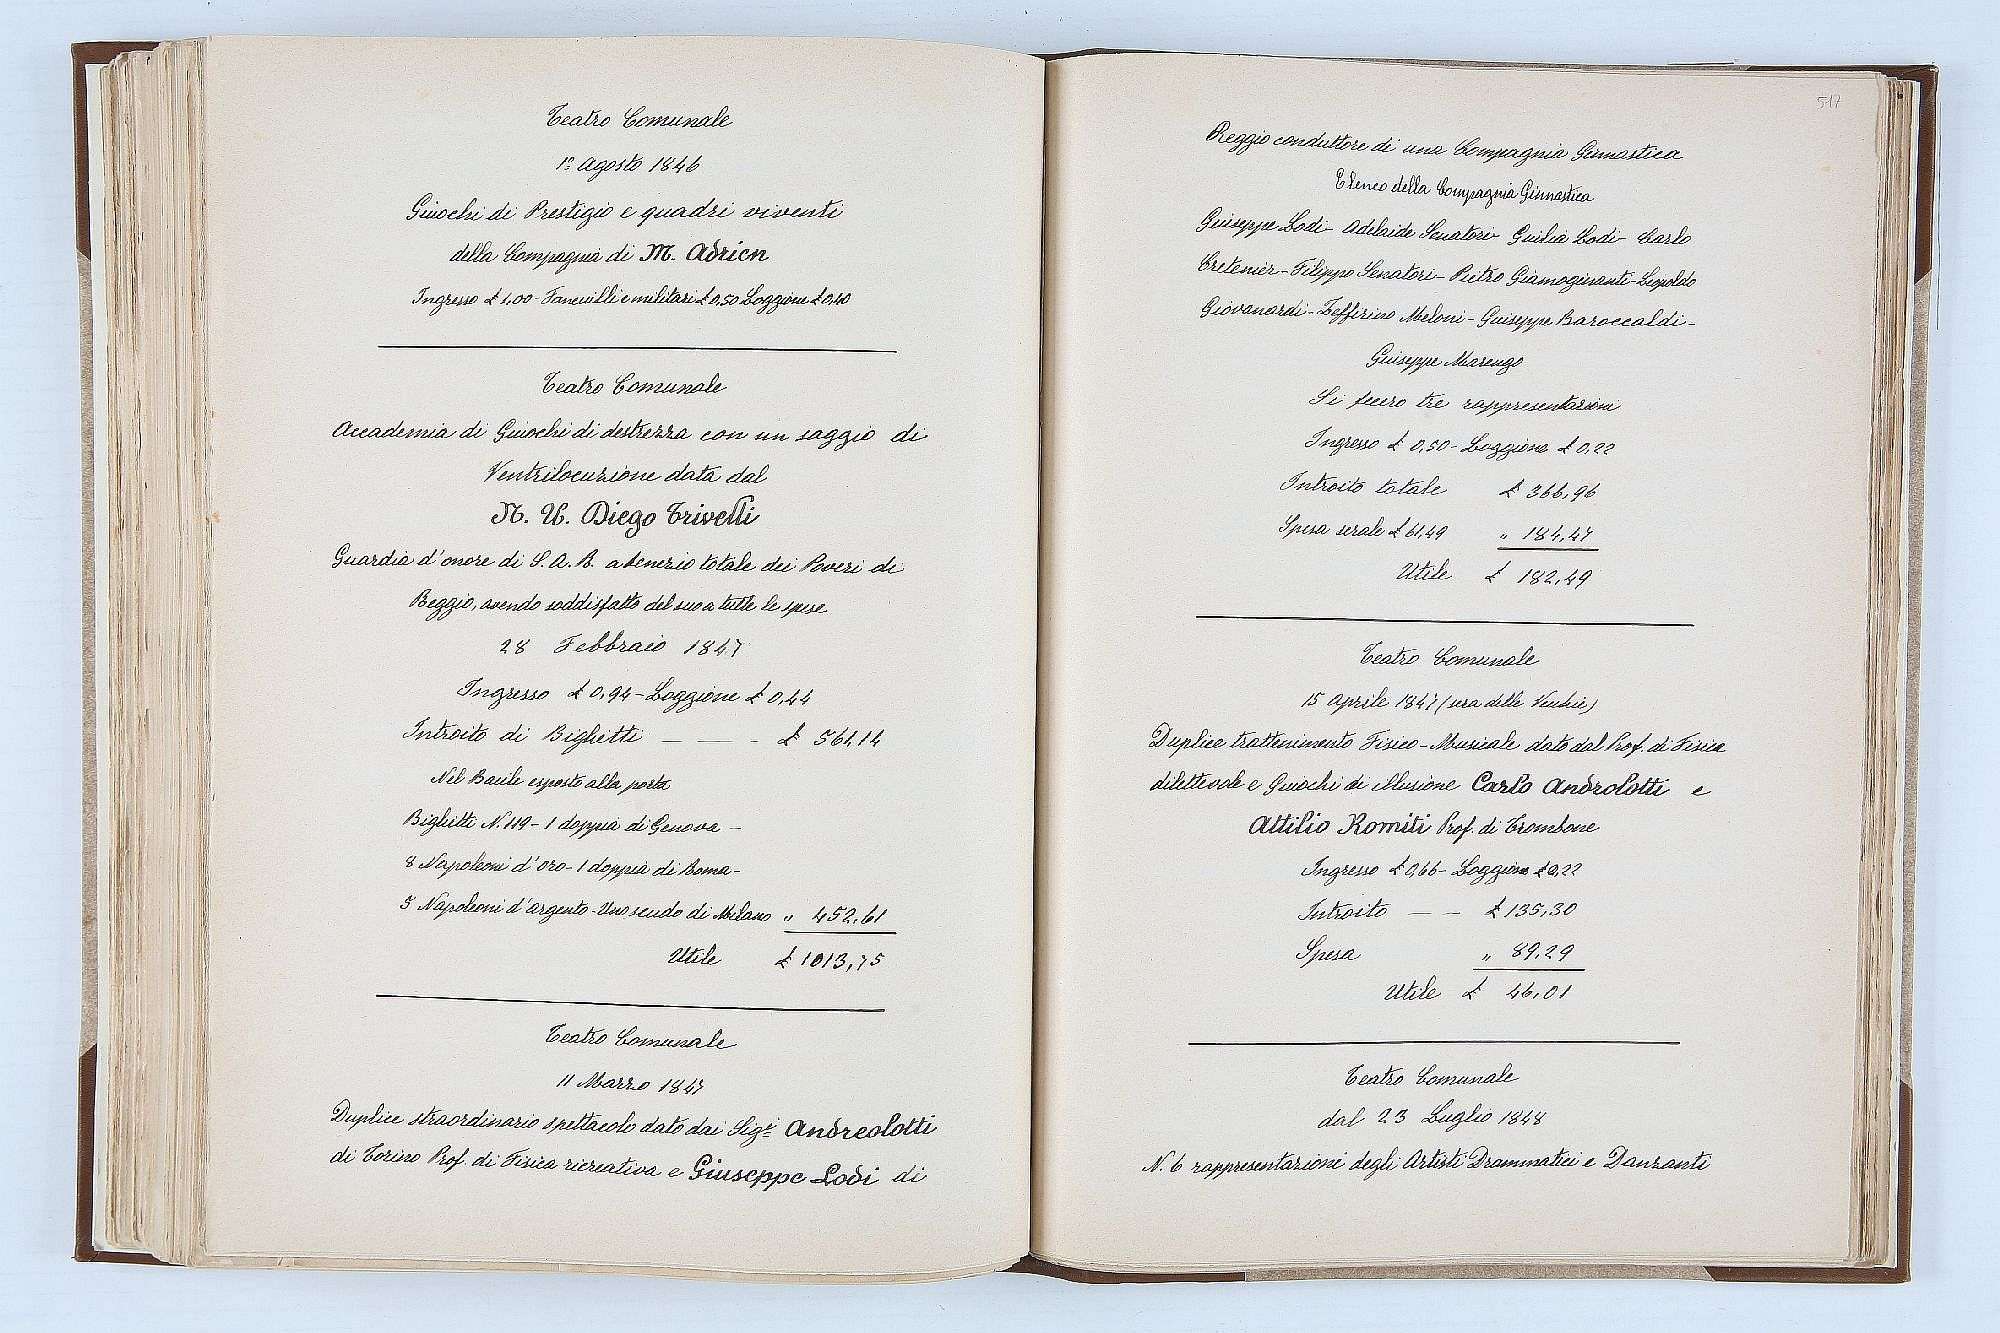 Teatro Comunale
1º Agosto 1846
Giuochi di Prestigio e quadri viventi
della Compagnia di M. Adrien
Ingresso £ 1,00 - Fanciulli e militari £ 0,50 Loggione £ 0,40
Teatro Comunale
Accademia di Giuochi di destrezza con un saggio di
Ventrilocuzione data dal
N. U. Diego Trivelli
Guardia d'onore di S. A. R. a benefizio totale dei Poveri di
Reggio, avendo soddisfatto del suo a tutte le spese
28 Febbraio 1847
Ingresso £ 0,94 - Loggione £ 0,44
Introito di Biglietti — — - £ 561,14
Nel Baule esposto alla porta
Biglietti N. 119 - 1 doppia di Genova -
8 Napoleoni d'oro - 1 doppia di Roma -
5 Napoleoni d'argento - Uno scudo di Milano " 452,61
Utile £ 1013,75
Teatro Comunale
11 Marzo 1847
Duplice straordinario spettacolo dato dai Sigri Andreolotti
di Torino Prof. di Fisica ricreativa e Giuseppe Lodi di
517
Reggio conduttore di una Compagnia Ginnastica
Elenco della Compagnia Ginnastica
Giuseppe Lodi - Adelaide Senatori - Giulia Lodi - Carlo
Cretenier - Filippo Senatori - Pietro Giamoginanti - Leopoldo
Giovanardi - Zeffirino Meloni - Giuseppe Baroccaldi -
Giuseppe Marengo
Si fecero tre rappresentazioni
Ingresso £ 0,50 - Loggione £ 0,22
Introito totale £ 366,96
Spesa serale £ 61,49 " 184,47
Utile £ 182,49
Teatro Comunale
15 Aprile 1847 (sera delle Vecchie)
Duplice trattenimento Fisico - Musicale dato dal Prof. di Fisica
dilettevole e Giuochi di illusione Carlo Androlotti e
Attilio Romiti Prof. di Trombone
Ingresso £ 0,66 - Loggione £ 0,22
Introito — - £ 135,30
Spesa " 89,29
Utile £ 46,01
Teatro Comunale
dal 23 Luglio 1848
N. 6 rappresentazioni degli Artisti Drammatici e Danzanti